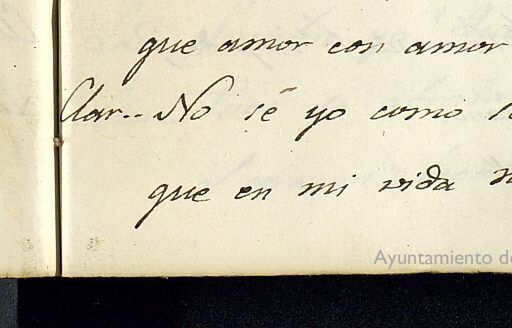 que amor con amor
Clar.. No sé yo como
que en mi vida
Ayuntamiento de